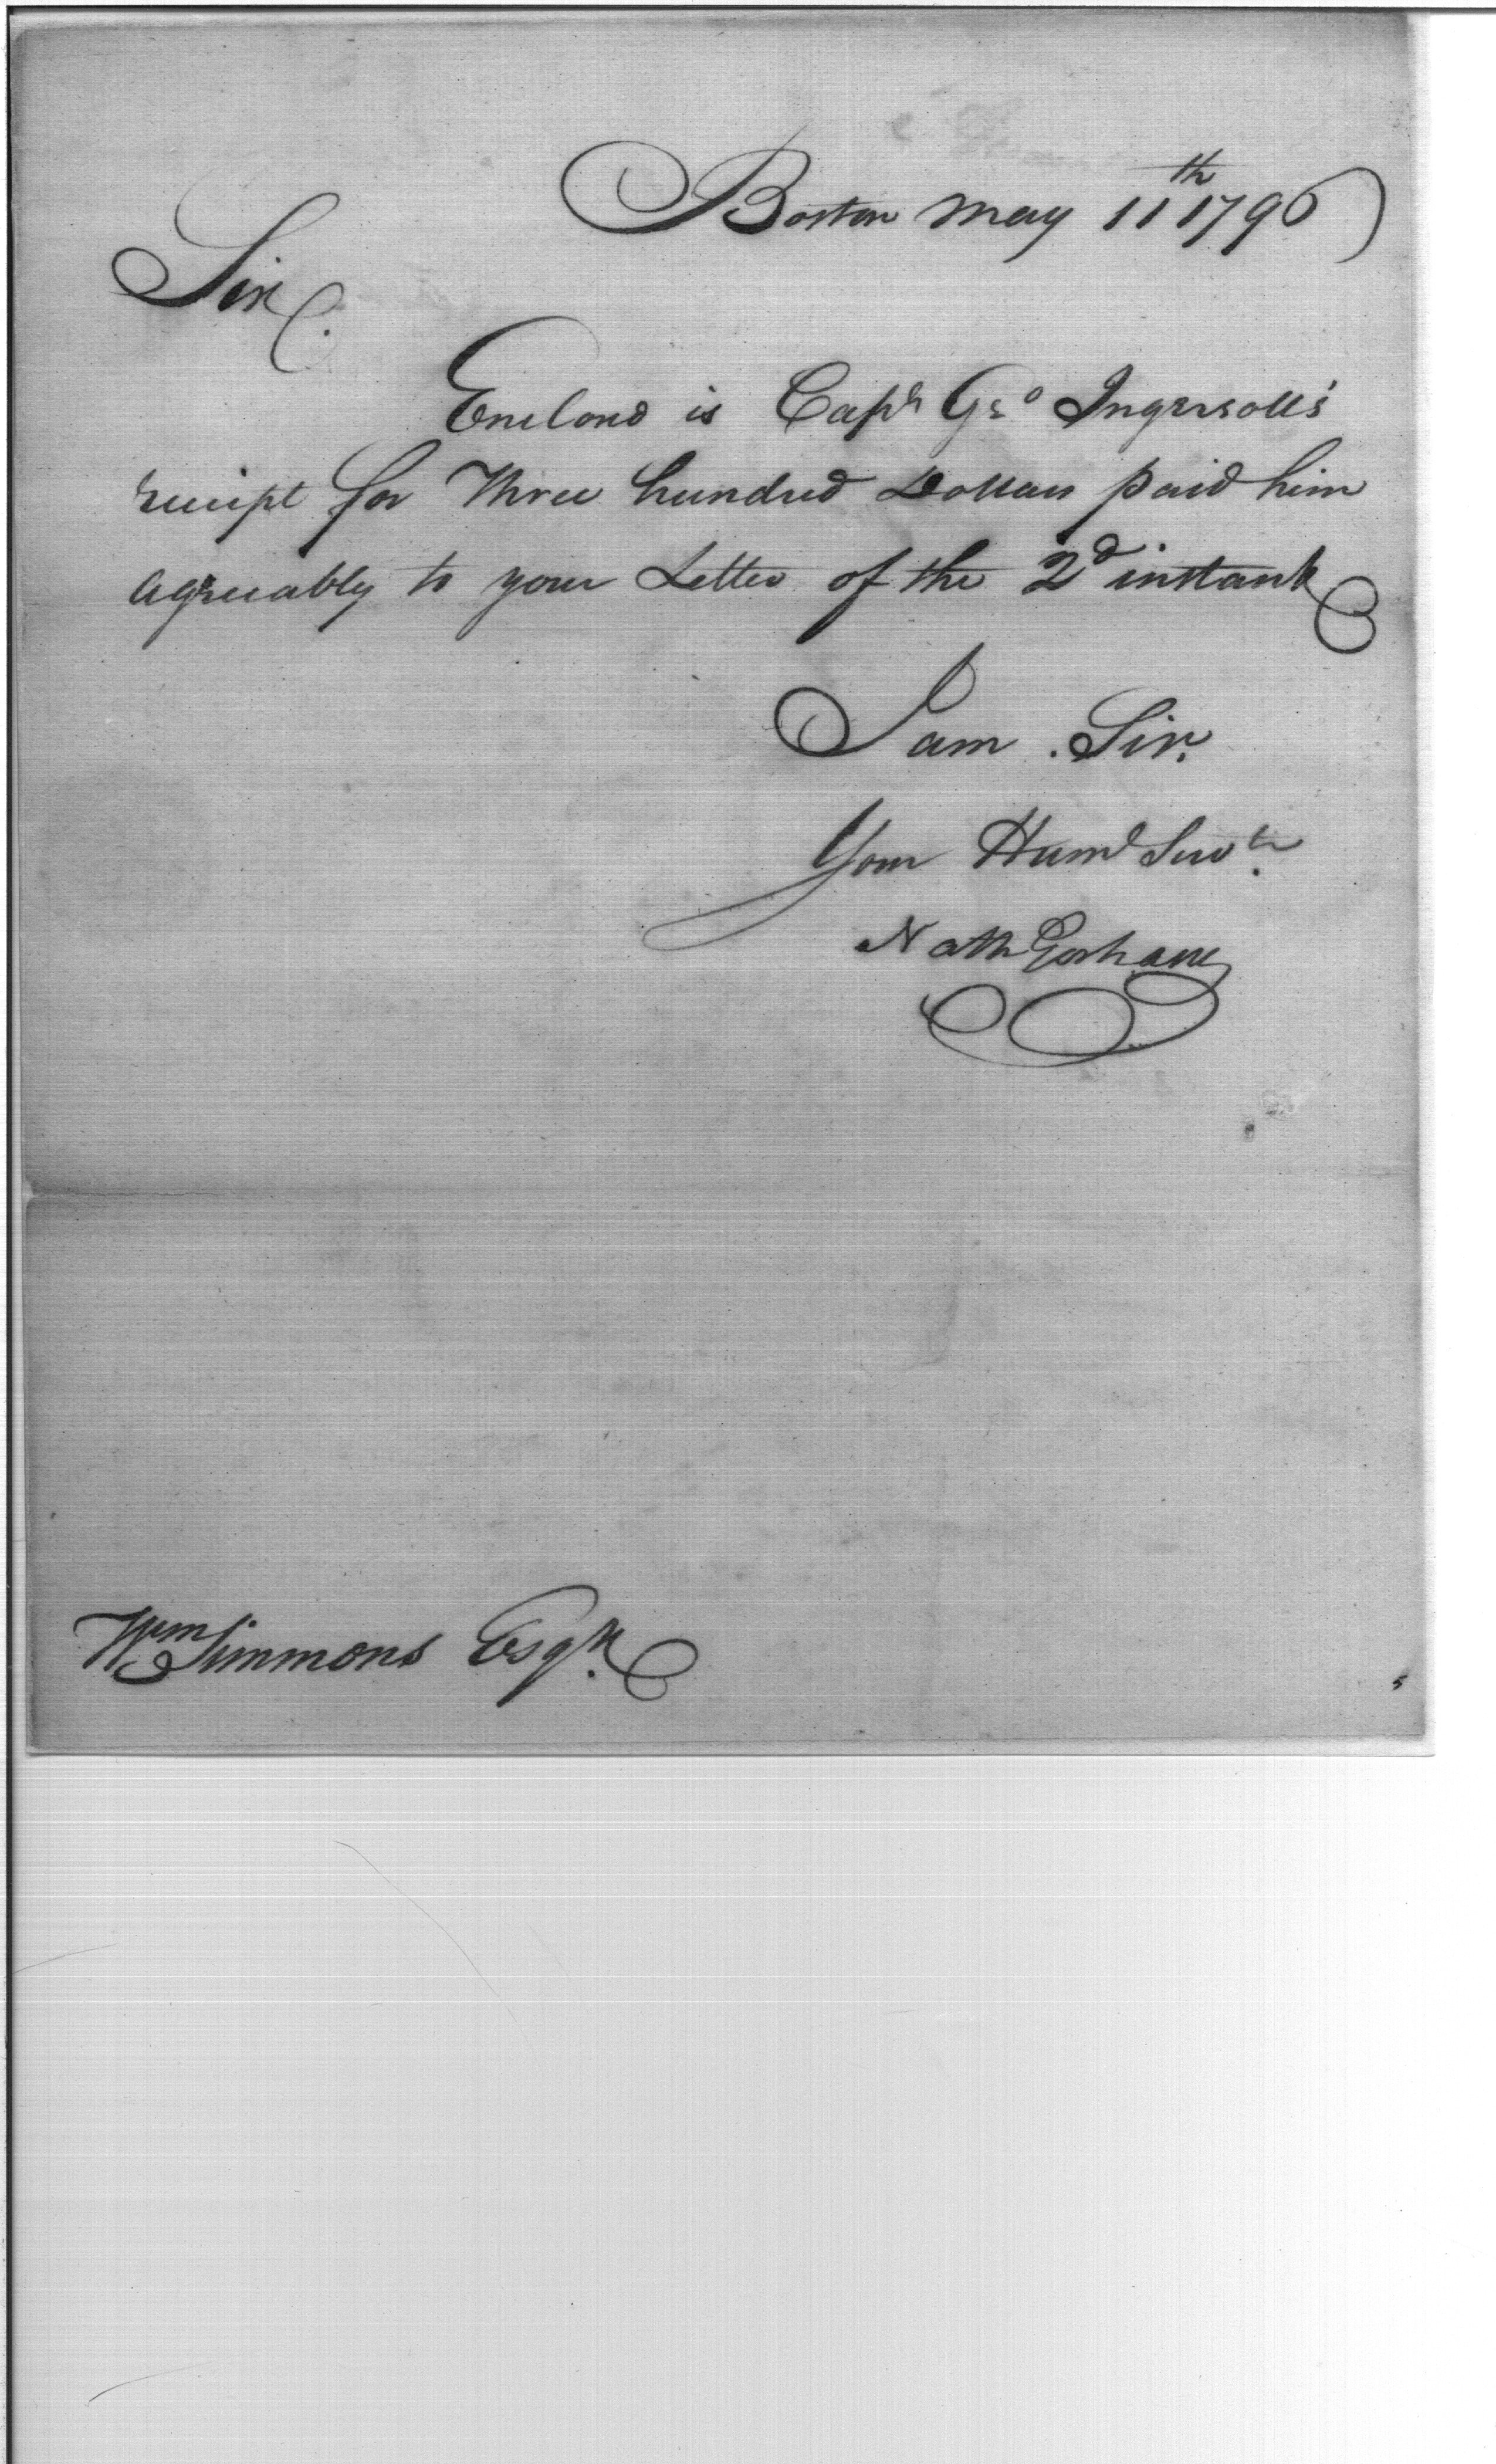 Boston May 11th 1796
Sir
Enclosd is Capt Geo Ingersoll's
receipt for Three hundred Dollars paid him
agreeably to your Letter of the 2d instant
I am Sir.
Your Huml Servt.
Nath Gorham
Wm Simmons Esqr.